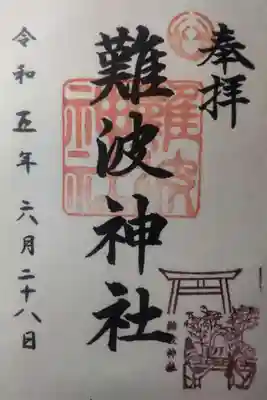 奉拝
難波神社
令和五年六月二十八日
難波神社